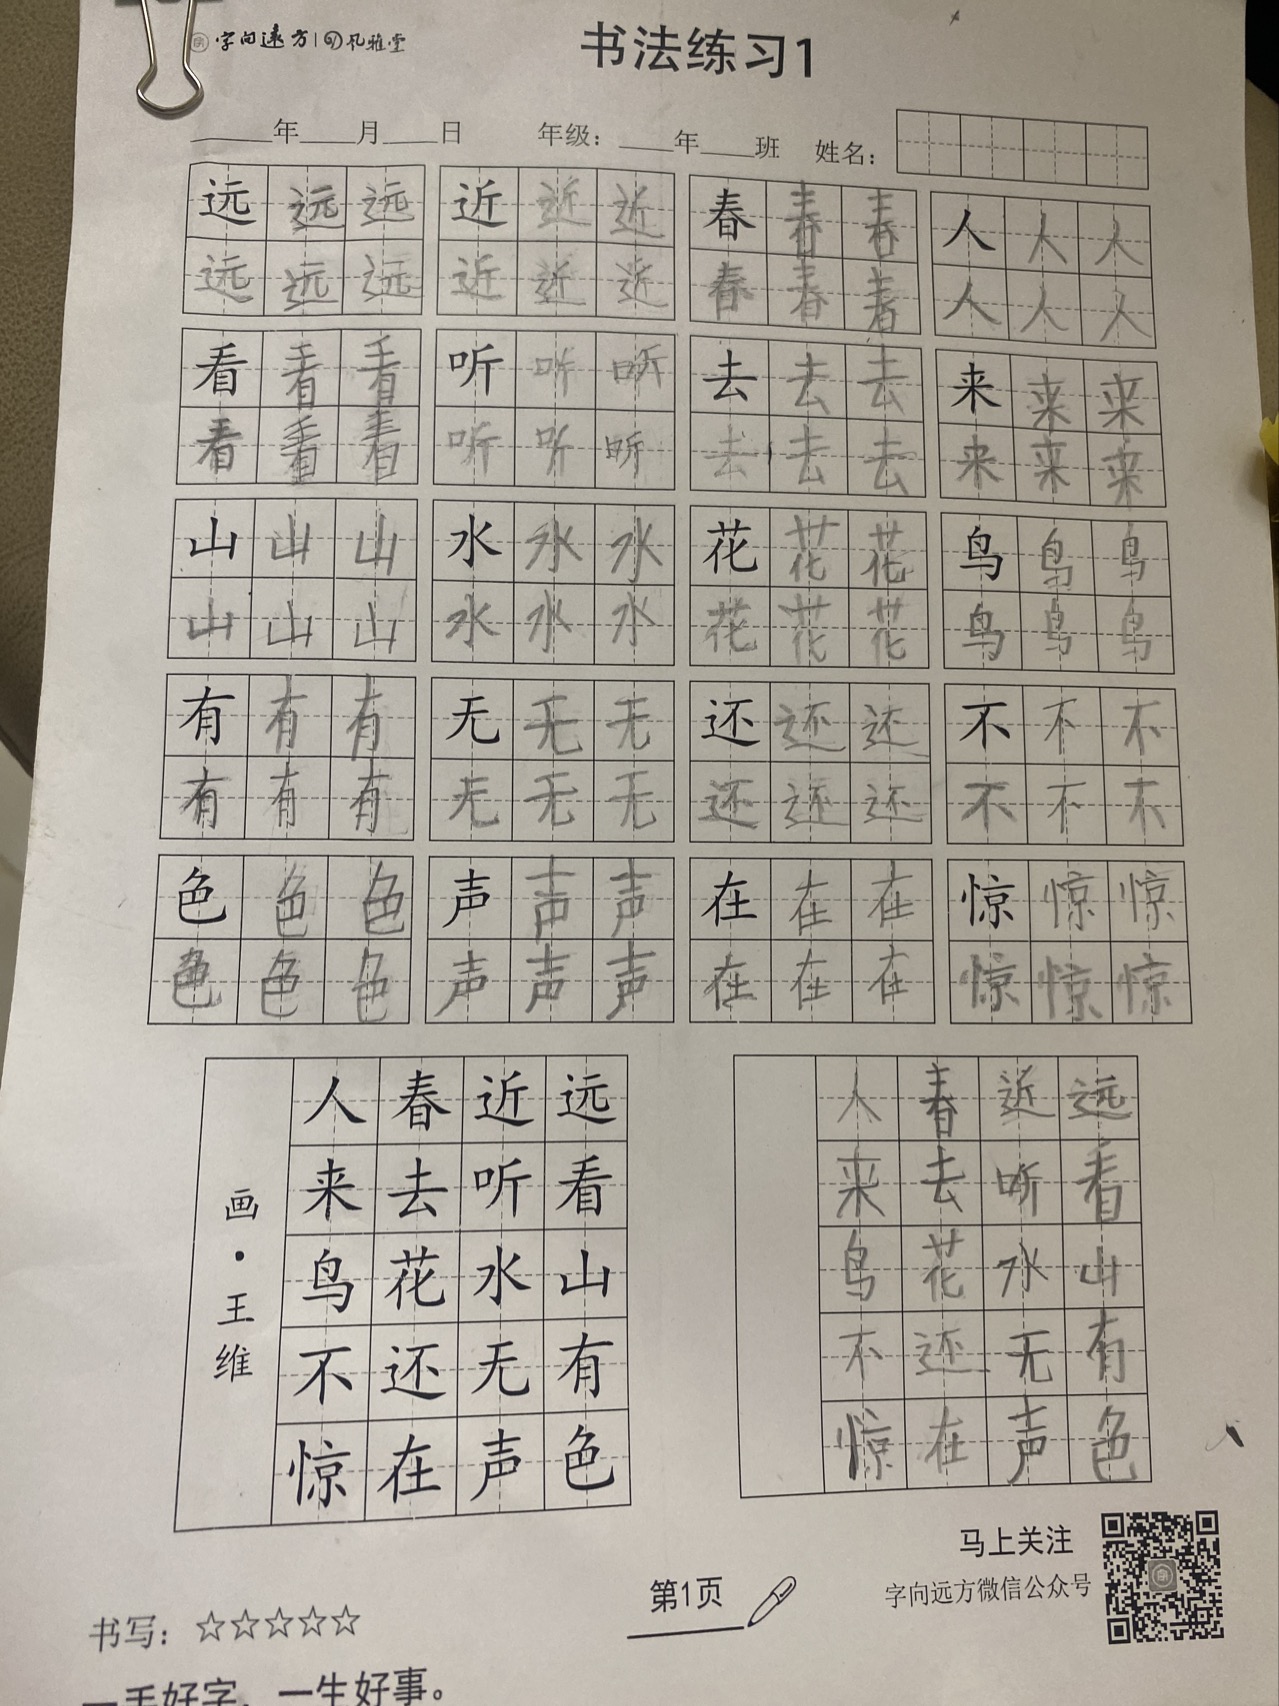 字向远方 | 孔雅堂
书法练习1
年 月 日 年级: 年 班 姓名:
远 远 远 近 近 近 春 春 春 人 人 人
远 远 远 近 近 近 春 春 春 人 人 人
看 看 看 听 听 听 去 去 去 来 来 来
看 看 看 听 听 听 去 去 去 来 来 来
山 山 山 水 水 水 花 花 花 鸟 鸟 鸟
山 山 山 水 水 水 花 花 花 鸟 鸟 鸟
有 有 有 无 无 无 还 还 还 不 不 不
有 有 有 无 无 无 还 还 还 不 不 不
色 色 色 声 声 声 在 在 在 惊 惊 惊
色 色 色 声 声 声 在 在 在 惊 惊 惊
远看山有色
近听水无声
春去花还在
人来鸟不惊
画·王维
远看山有色
近听水无声
春去花还在
人来鸟不惊
马上关注
字向远方微信公众号
第1页
书写: ☆☆☆☆☆
一手好字，一生好事。